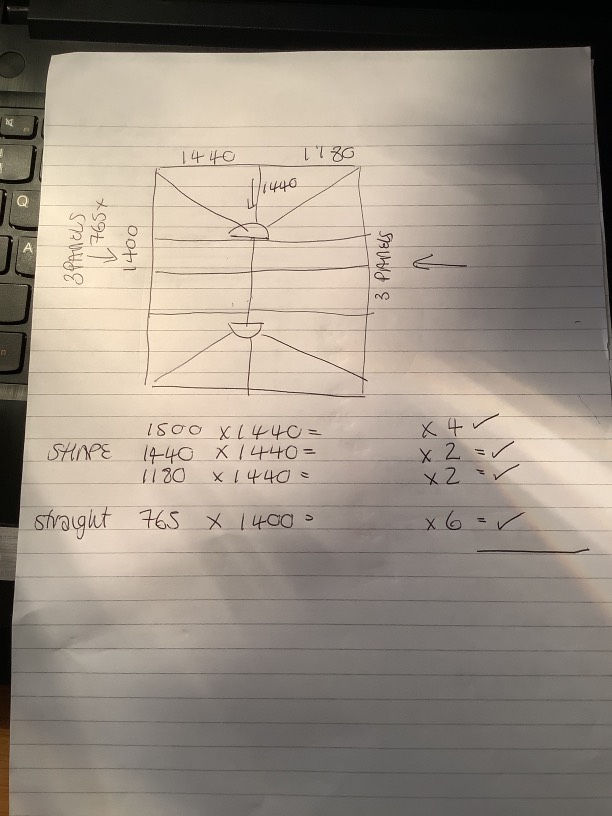 1440 1180
1440
3 PANELS
765 x
1400
3 PANELS
1500 x 1440 = x 4 ✓
SHAPE 1440 x 1440 = x 2 = ✓
1180 x 1440 = x 2 = ✓
straight 765 x 1400 = x 6 = ✓
Q
A